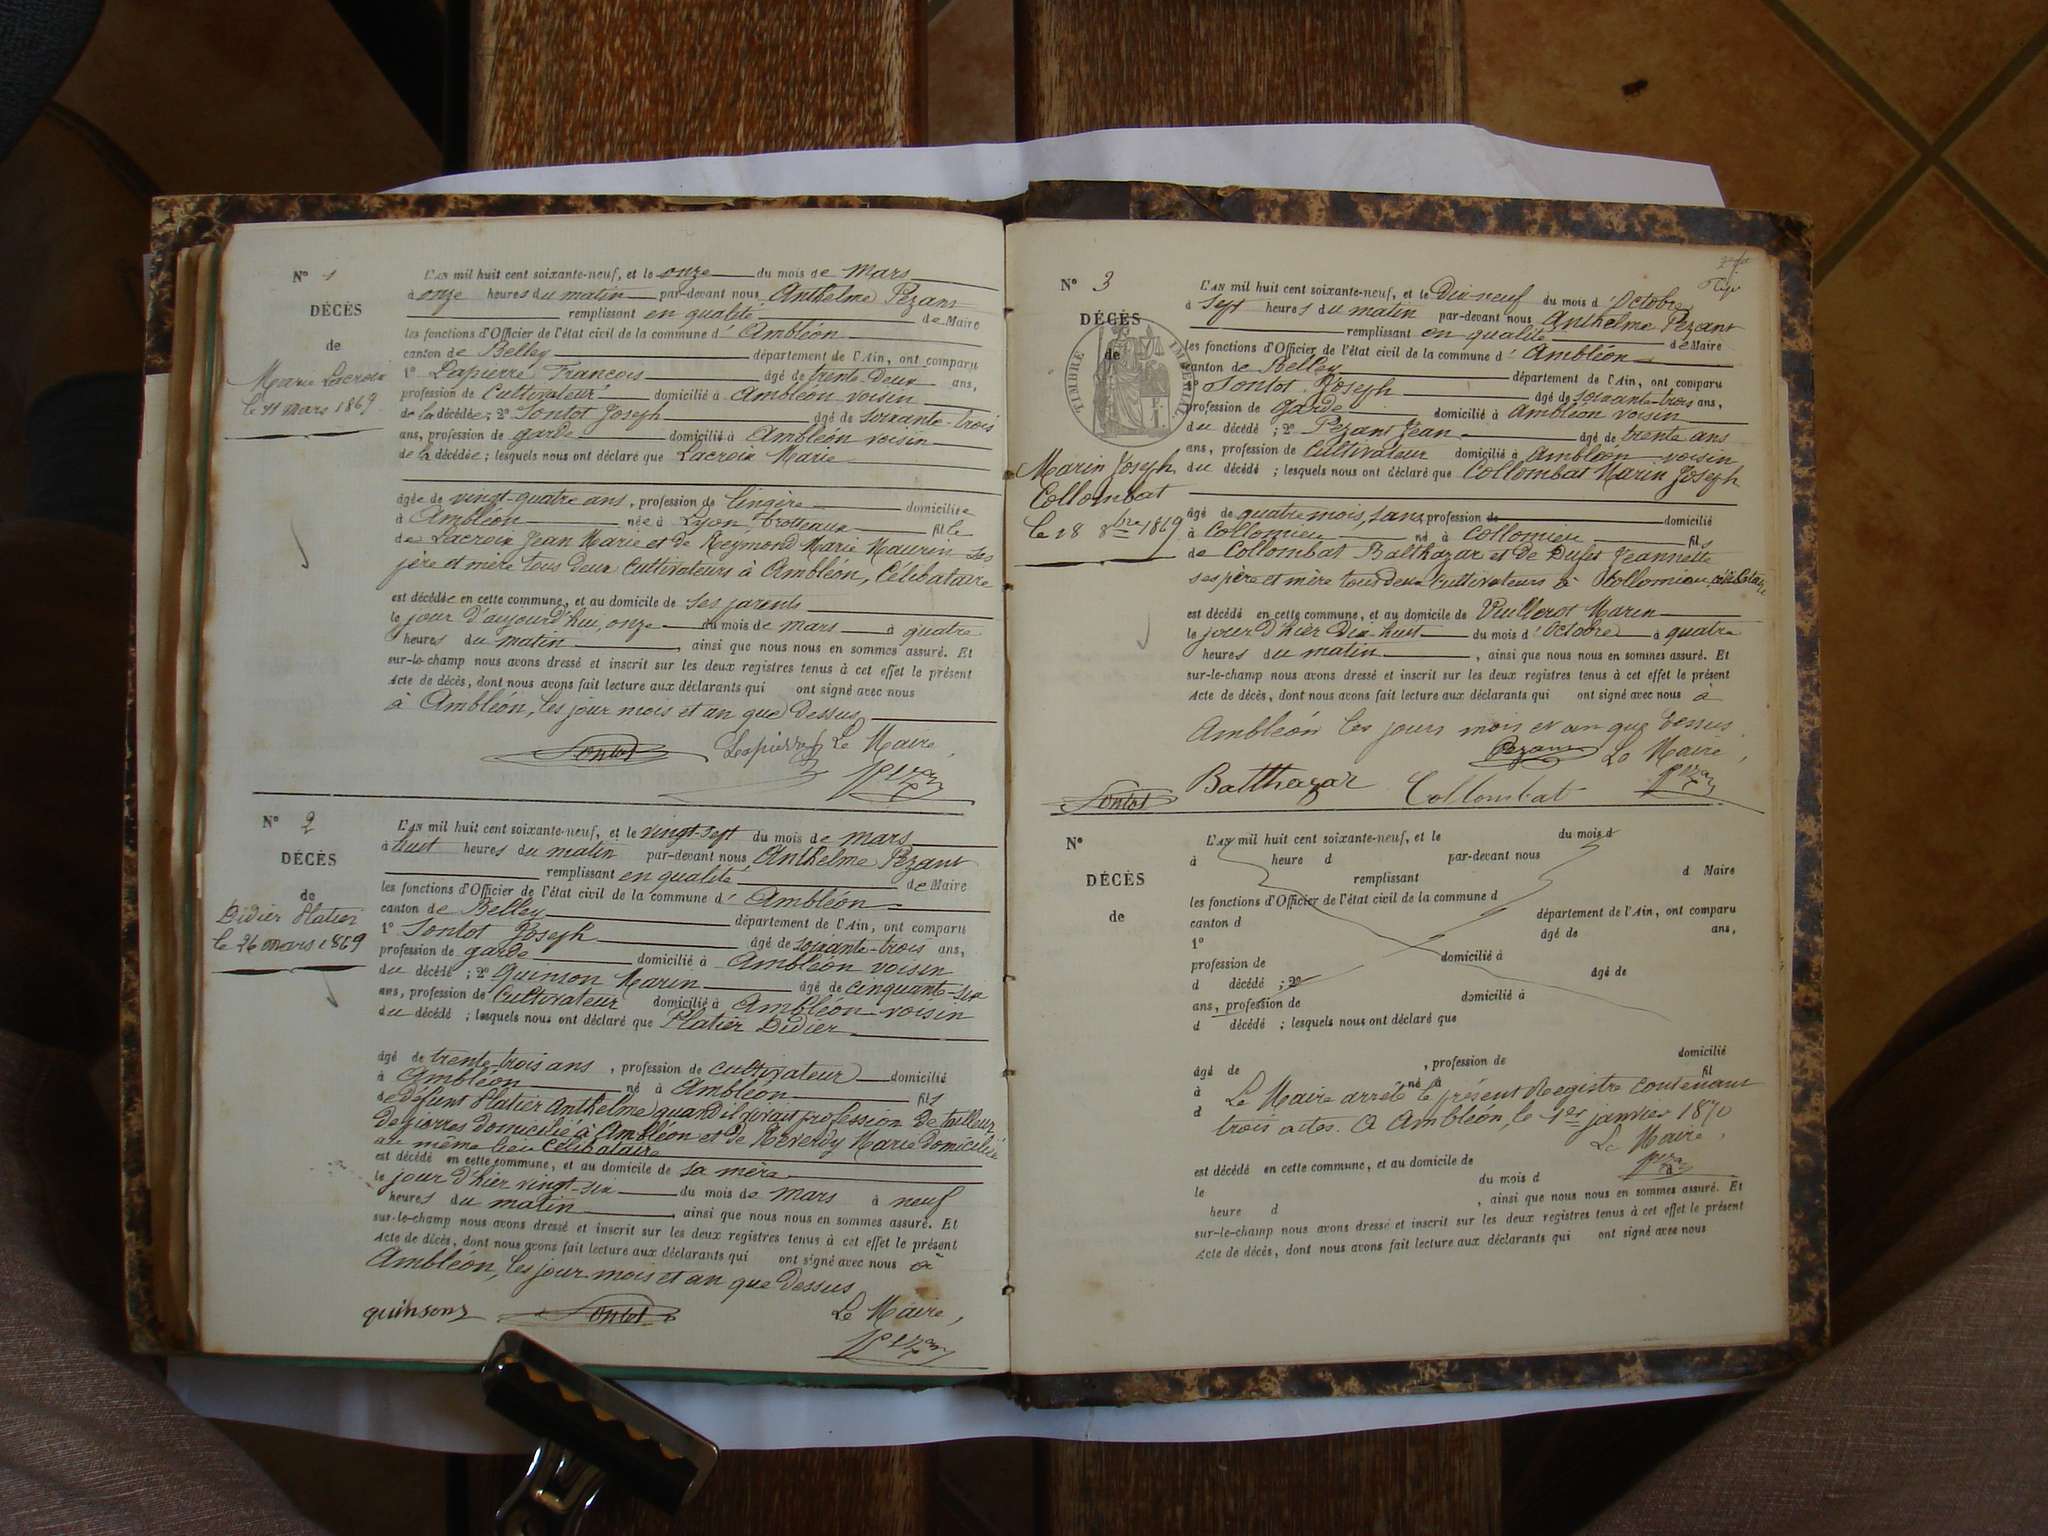 N° 1
DÉCÈS
de
Marie Lacroix
le 11 mars 1869
L'AN mil huit cent soixante-neuf, et le onze du mois de mars
à onze heures du matin par-devant nous Anthelme Pezant
remplissant en qualité de Maire
les fonctions d'Officier de l'état civil de la commune d' Ambléon
canton de Belley département de l'Ain, ont comparu
1° Lapierre François âgé de trente-deux ans,
profession de Cultivateur domicilié à Ambléon voisin
de la décédée ; 2° Sontot Joseph âgé de soixante-trois
ans, profession de garde domicilié à Ambléon voisin
de la décédée ; lesquels nous ont déclaré que Lacroix Marie
âgée de vingt-quatre ans, profession de lingère domiciliée
à Ambléon née à Lyon, Brotteaux fille
de Lacroix Jean Marie et de Reymond Marie Maurin ses
père et mère tous deux cultivateurs à Ambléon, Célibataire
est décédée en cette commune, et au domicile de ses parents
le jour d'aujourd'hui, onze du mois de mars à quatre
heures du matin , ainsi que nous nous en sommes assuré. Et
sur-le-champ nous avons dressé et inscrit sur les deux registres tenus à cet effet le présent
Acte de décès, dont nous avons fait lecture aux déclarants qui ont signé avec nous
à Ambléon, les jour mois et an que dessus
Sontot Lapierre Le Maire,
Pezant
N° 2
DÉCÈS
de
Didier Platier
le 26 mars 1869
L'AN mil huit cent soixante-neuf, et le vingt-sept du mois de mars
à huit heures du matin par-devant nous Anthelme Pezant
remplissant en qualité de Maire
les fonctions d'Officier de l'état civil de la commune d' Ambléon
canton de Belley département de l'Ain, ont comparu
1° Sontot Joseph âgé de soixante-trois ans,
profession de garde domicilié à Ambléon voisin
du décédé ; 2° Quinson Marin âgé de cinquante-six
ans, profession de Cultivateur domicilié à Ambléon voisin
du décédé ; lesquels nous ont déclaré que Platier Didier
âgé de trente-trois ans , profession de cultivateur domicilié
à Ambléon né à Ambléon fils
de défunt Platier Anthelme quand il vivait profession de tailleur
de pierres domicilié à Ambléon et de Reverdy Marie domiciliée
au même lieu Célibataire
est décédé en cette commune, et au domicile de sa mère
le jour d'hier vingt-six du mois de mars à neuf
heures du matin , ainsi que nous nous en sommes assuré. Et
sur-le-champ nous avons dressé et inscrit sur les deux registres tenus à cet effet le présent
Acte de décès, dont nous avons fait lecture aux déclarants qui ont signé avec nous à
Ambléon, les jour mois et an que dessus
quinson Sontot Le Maire,
Pezant
N° 3
DÉCÈS
de
TIMBRE IMPERIAL
Marin Joseph
Collombat
le 18 8bre 1869
L'AN mil huit cent soixante-neuf, et le Dix-neuf du mois d'Octobre
à sept heures du matin par-devant nous Anthelme Pezant
remplissant en qualité de Maire
les fonctions d'Officier de l'état civil de la commune d' Ambléon
canton de Belley département de l'Ain, ont comparu
1° Sontot Joseph âgé de soixante-trois ans,
profession de garde domicilié à Ambléon voisin
du décédé ; 2° Pezant Jean âgé de trente ans
ans, profession de Cultivateur domicilié à Ambléon voisin
du décédé ; lesquels nous ont déclaré que Collombat Marin Joseph
âgé de quatre mois, sans profession de domicilié
à Collomieu né à Collomieu fils
de Collombat Balthazar et de Jeannette
ses père et mère tous deux cultivateurs à Collomieu, célibataire
est décédé en cette commune, et au domicile de Vuillerot Marin
le jour d'hier Dix-huit du mois d'Octobre à quatre
heures du matin , ainsi que nous nous en sommes assuré. Et
sur-le-champ nous avons dressé et inscrit sur les deux registres tenus à cet effet le présent
Acte de décès, dont nous avons fait lecture aux déclarants qui ont signé avec nous à
Ambléon les jours mois et an que dessus
Pezant Le Maire,
Sontot Balthazar Collombat Pezant
N°
DÉCÈS
de
L'AN mil huit cent soixante-neuf, et le du mois d
à heure d par-devant nous
remplissant d Maire
les fonctions d'Officier de l'état civil de la commune d
canton d département de l'Ain, ont comparu
1° âgé de ans,
profession de domicilié à
d décédé ; 2° âgé de
ans, profession de domicilié à
d décédé ; lesquels nous ont déclaré que
âgé de , profession de domicilié
à né à fil
d
Le Maire arrête le présent Registre contenant
trois actes. A Ambléon, le 1er janvier 1870
Le Maire,
Pezant
est décédé en cette commune, et au domicile de
le du mois d
heure d , ainsi que nous nous en sommes assuré. Et
sur-le-champ nous avons dressé et inscrit sur les deux registres tenus à cet effet le présent
Acte de décès, dont nous avons fait lecture aux déclarants qui ont signé avec nous